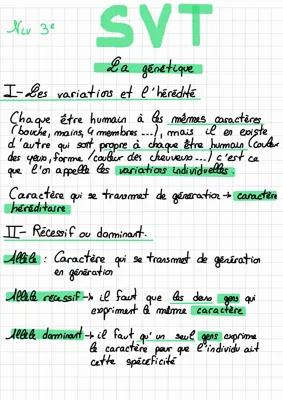 Niv 3e
SVT
La génétique
I- Les variations et l'hérédité
Chaque être humain à les mêmes caractères
(bouche, mains, 4 membres ...), mais il en existe
d'autre qui sont propre à chaque être humain (couleur
des yeux, forme / couleur des cheveux ...) c'est ce
que l'on appelle les variations individuelles.
Caractère qui se transmet de géneration → caractère
héréditaire
II- Récessif ou dominant.
Allèle : Caractère qui se transmet de génération
en génération
Allèle récessif → il faut que les deux gens qui
expriment le même caractère
Allèle dominant → il faut qu'un seul gens exprime
le caractère pour que l'individu ait
cette spécificité